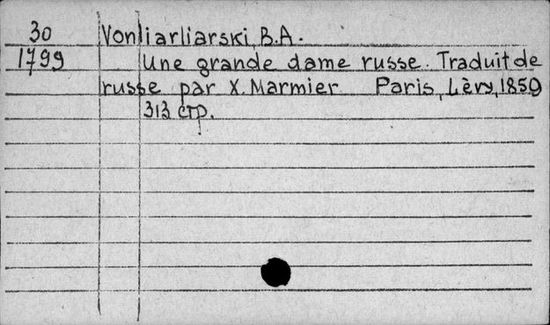 30 Vonliarliarski, B.A.
1799 Une grande dame russe. Traduit de
russe par X. Marmier Paris, Lèvy, 1859
313 стр.